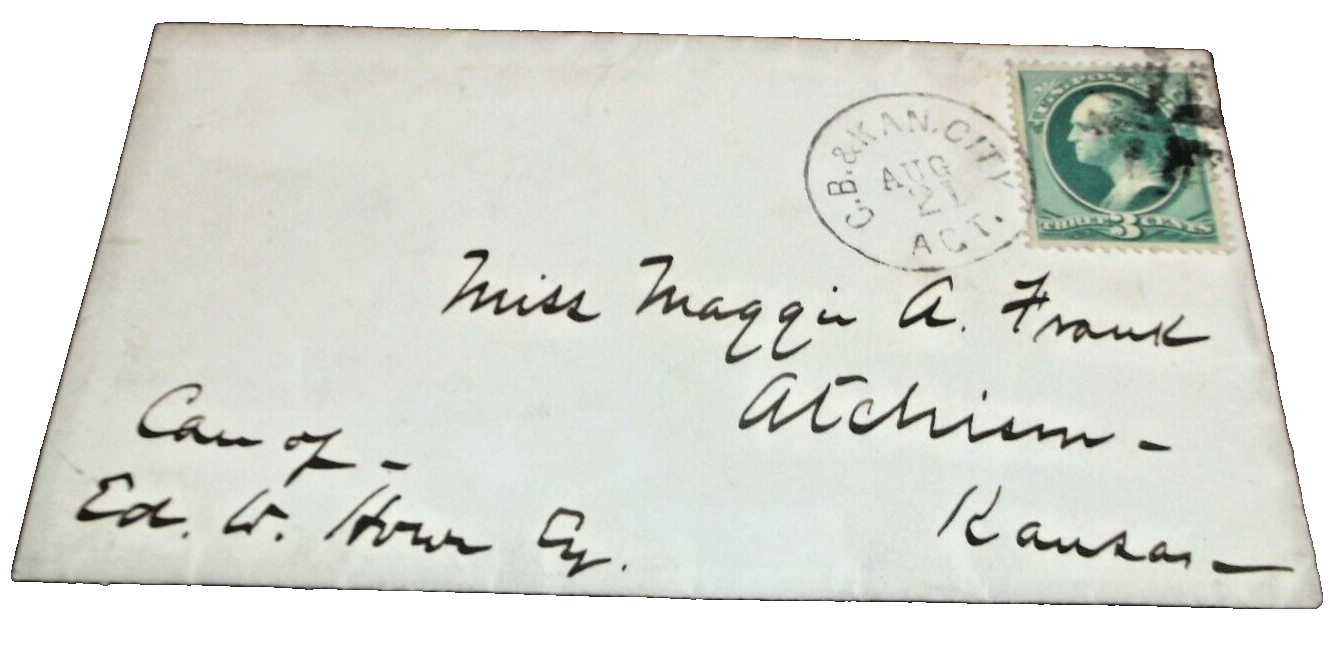 C.B. & KAN. CITY
AUG
21
AGT.
U.S. POSTAGE
THREE 3 CENTS
Miss Maggie A. Frank
Atchison -
Kansas
Care of -
Ed. W. Howe Esq.